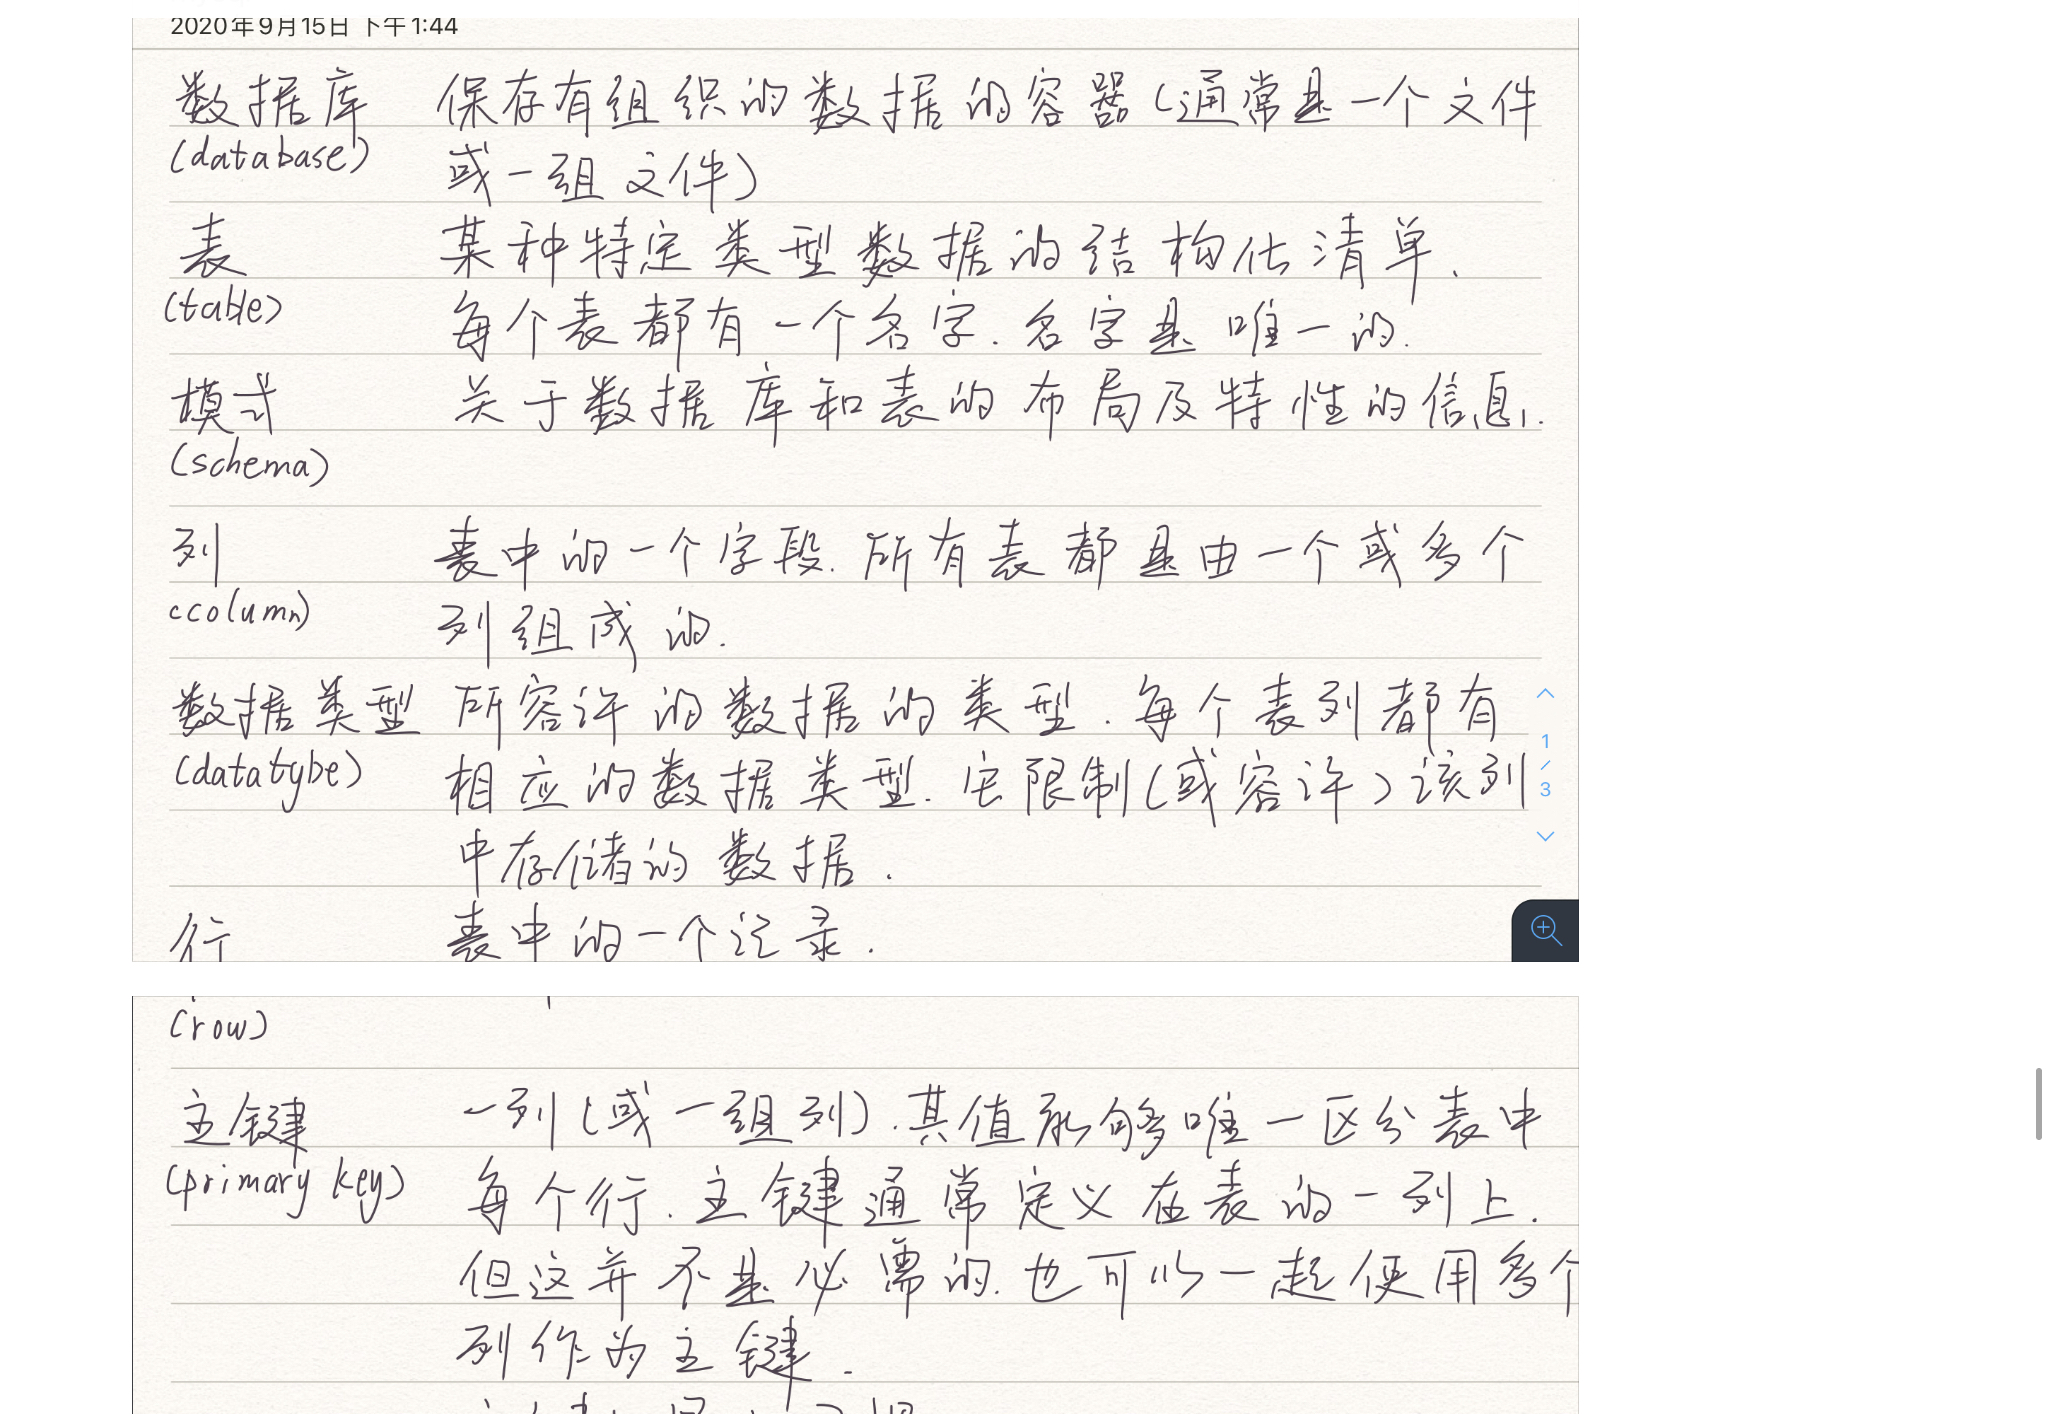 2020年9月15日 下午1:44
数据库 保存有组织的数据的容器(通常是一个文件
(database) 或一组文件)
表 某种特定类型数据的结构化清单.
(table) 每个表都有一个名字.名字是唯一的.
模式 关于数据库和表的布局及特性的信息.
(schema)
列 表中的一个字段.所有表都是由一个或多个
(column) 列组成的.
数据类型 所容许的数据的类型.每个表列都有
(datatybe) 相应的数据类型.它限制(或容许)该列
中存储的数据.
行 表中的一个记录.
1
/
3
(row)
主键 一列(或一组列).其值能够唯一区分表中
(primary key) 每个行.主键通常定义在表的一列上.
但这并不是必需的.也可以一起使用多个
列作为主键.